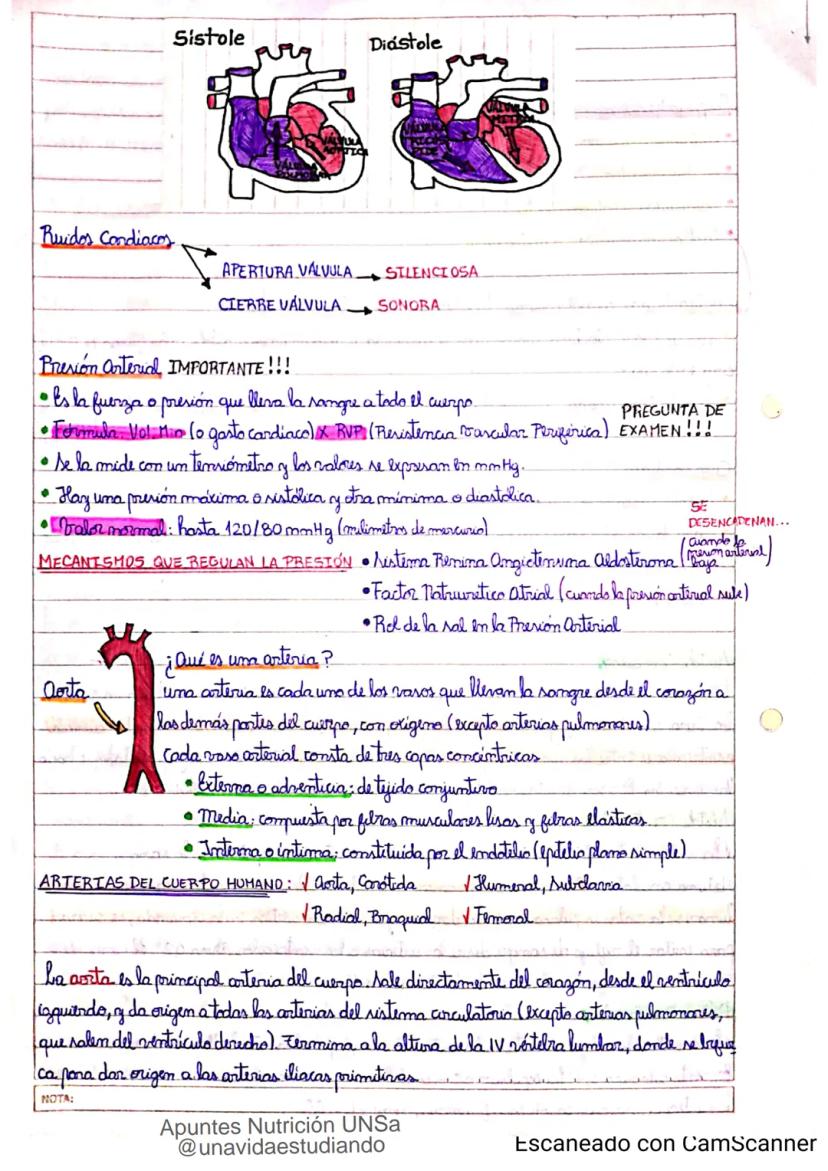 Sístole
Diástole
VÁLVULA AÓRTICA
VÁLVULA PULMONAR
VÁLVULA MITRAL
VÁLVULA TRICUSPIDE
Ruidos Cardiacos
APERTURA VÁLVULA → SILENCIOSA
CIERRE VÁLVULA → SONORA
Presión arterial IMPORTANTE!!!
• Es la fuerza o presión que lleva la sangre a todo el cuerpo
• Fórmula: Vol. Min (o gasto cardíaco) X RVP (Resistencia Vascular Periférica)
PREGUNTA DE
EXAMEN!!!
• Se la mide con un tensiómetro y los valores se expresan en mmHg.
• Hay una presión máxima o sistólica y otra mínima o diastólica.
• Valor normal: hasta 120/80 mmHg (milímetros de mercurio)
SE
DESENCADENAN...
MECANISMOS QUE REGULAN LA PRESIÓN • Sistema Renina Angiotensina Aldosterona (cuando la presión arterial baja)
• Factor Natriurético Atrial (cuando la presión arterial sube)
• Rol de la sal en la Presión Arterial
¿Qué es una arteria?
Aorta
una arteria es cada uno de los vasos que llevan la sangre desde el corazón a
las demás partes del cuerpo, con oxígeno (excepto arterias pulmonares)
Cada vaso arterial consta de tres capas concéntricas
• Externa o adventicia: de tejido conjuntivo
• Media: compuesta por fibras musculares lisas y fibras elásticas
• Interna o íntima: constituida por el endotelio (epitelio plano simple)
ARTERIAS DEL CUERPO HUMANO: √ Aorta, Carótida √ Humeral, Subclavia
√ Radial, Braquial √ Femoral
La aorta es la principal arteria del cuerpo. Sale directamente del corazón, desde el ventrículo
izquierdo, y da origen a todas las arterias del sistema circulatorio (excepto arterias pulmonares,
que salen del ventrículo derecho). Termina a la altura de la IV vértebra lumbar, donde se bifur
ca para dar origen a las arterias ilíacas primitivas
NOTA:
Apuntes Nutrición UNSa
@unavidaestudiando
Escaneado con CamScanner